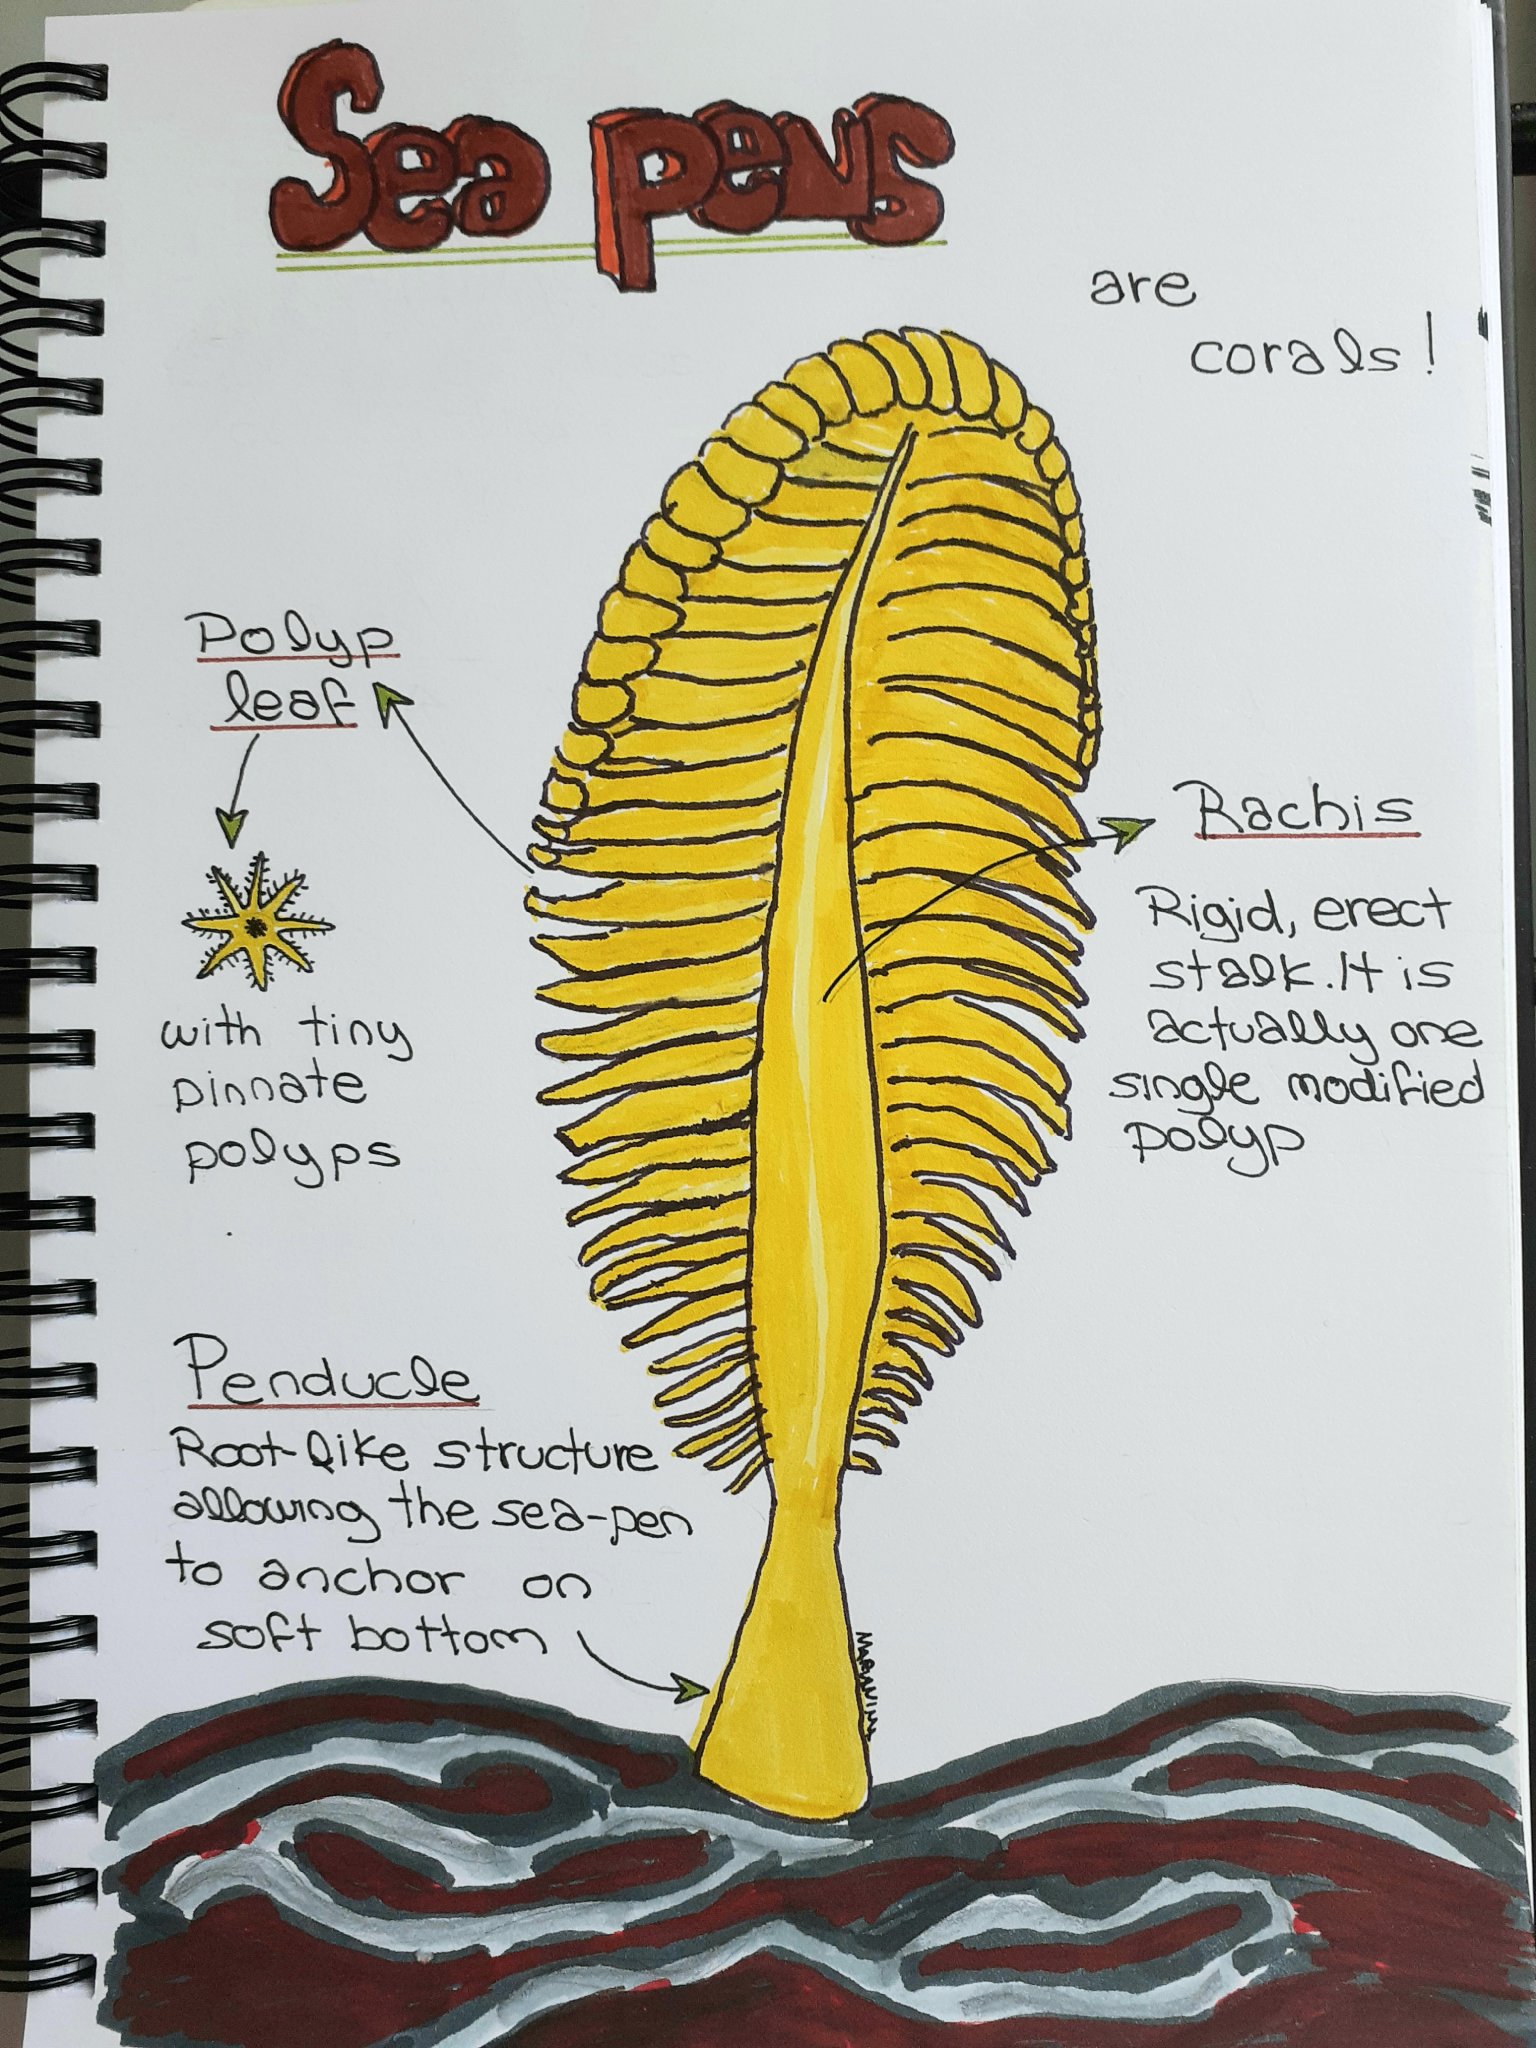 Sea pens
are
corals!
Polyp
leaf
with tiny
pinnate
polyps
Rachis
Rigid, erect
stalk. It is
actually one
single modified
polyp
Penducle
Root-like structure
allowing the sea-pen
to anchor on
soft bottom